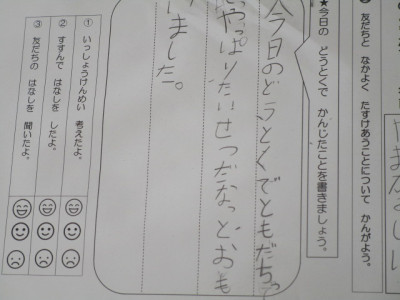 友だちと なかよく たすけあうことについて かんがよう。
★今日の どうとくで かんじたことを書きましょう。
今日のどうとくでともだちっ
やっぱりたいせつだなっどおも
いました。
① いっしょうけんめい 考えたよ。
② すすんで はなしを したよ。
③ 友だちの はなしを 聞いたよ。